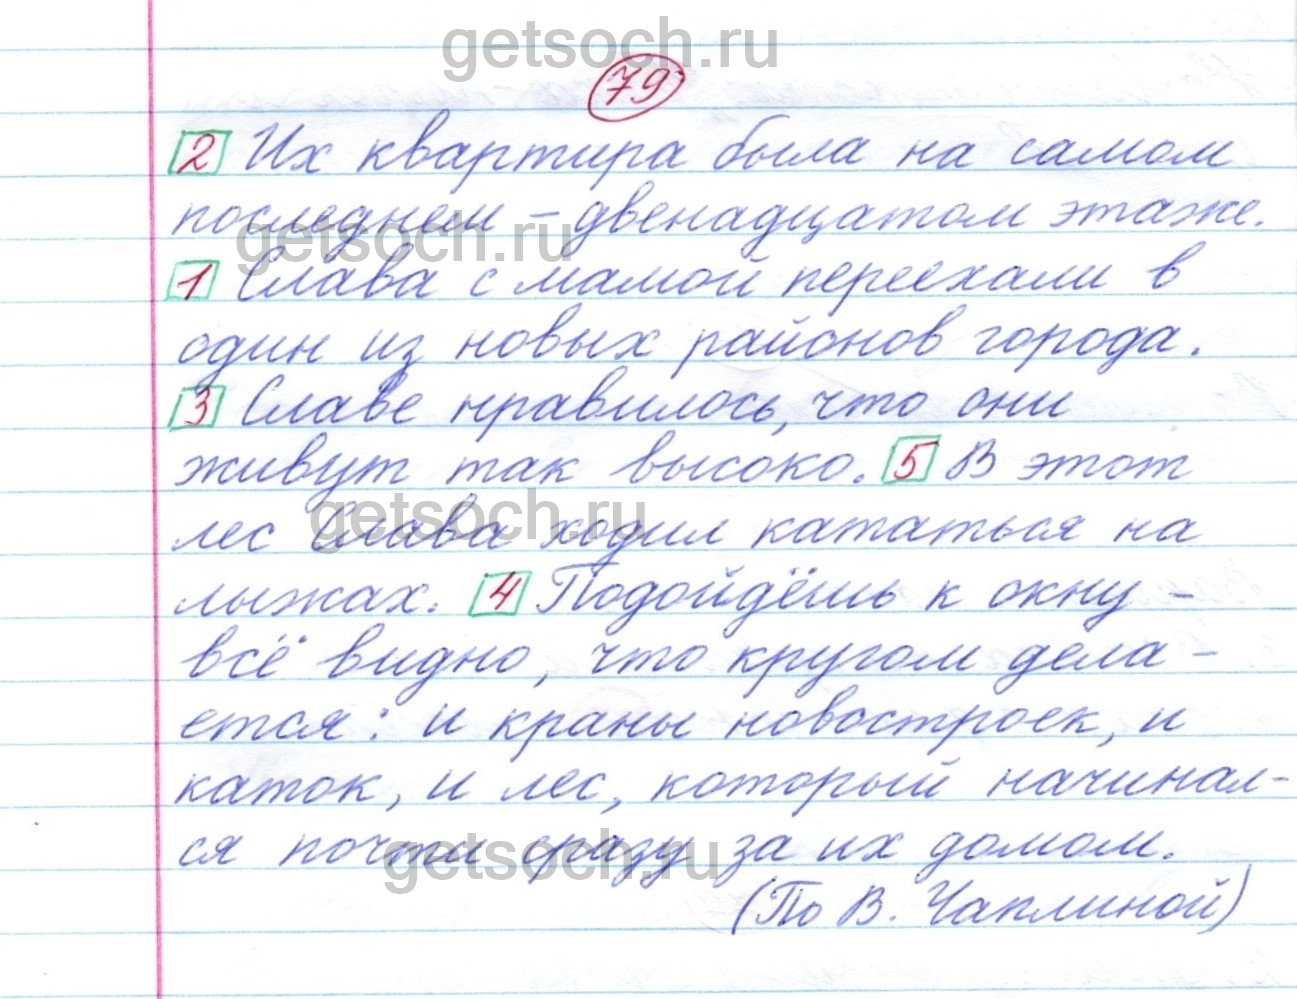 getsoch.ru
79
2 Их квартира была на самом
последнем – двенадцатом этаже.
getsoch.ru
1 Слава с мамой переехали в
один из новых районов города.
3 Славе нравилось, что они
живут так высоко. 5 В этот
getsoch.ru
лес Слава ходил кататься на
лыжах. 4 Подойдёшь к окну –
всё видно, что кругом дела-
ется: и краны новостроек, и
каток, и лес, который начинал-
ся почти сразу за их домом.
getsoch.ru
(По В. Чаплиной)